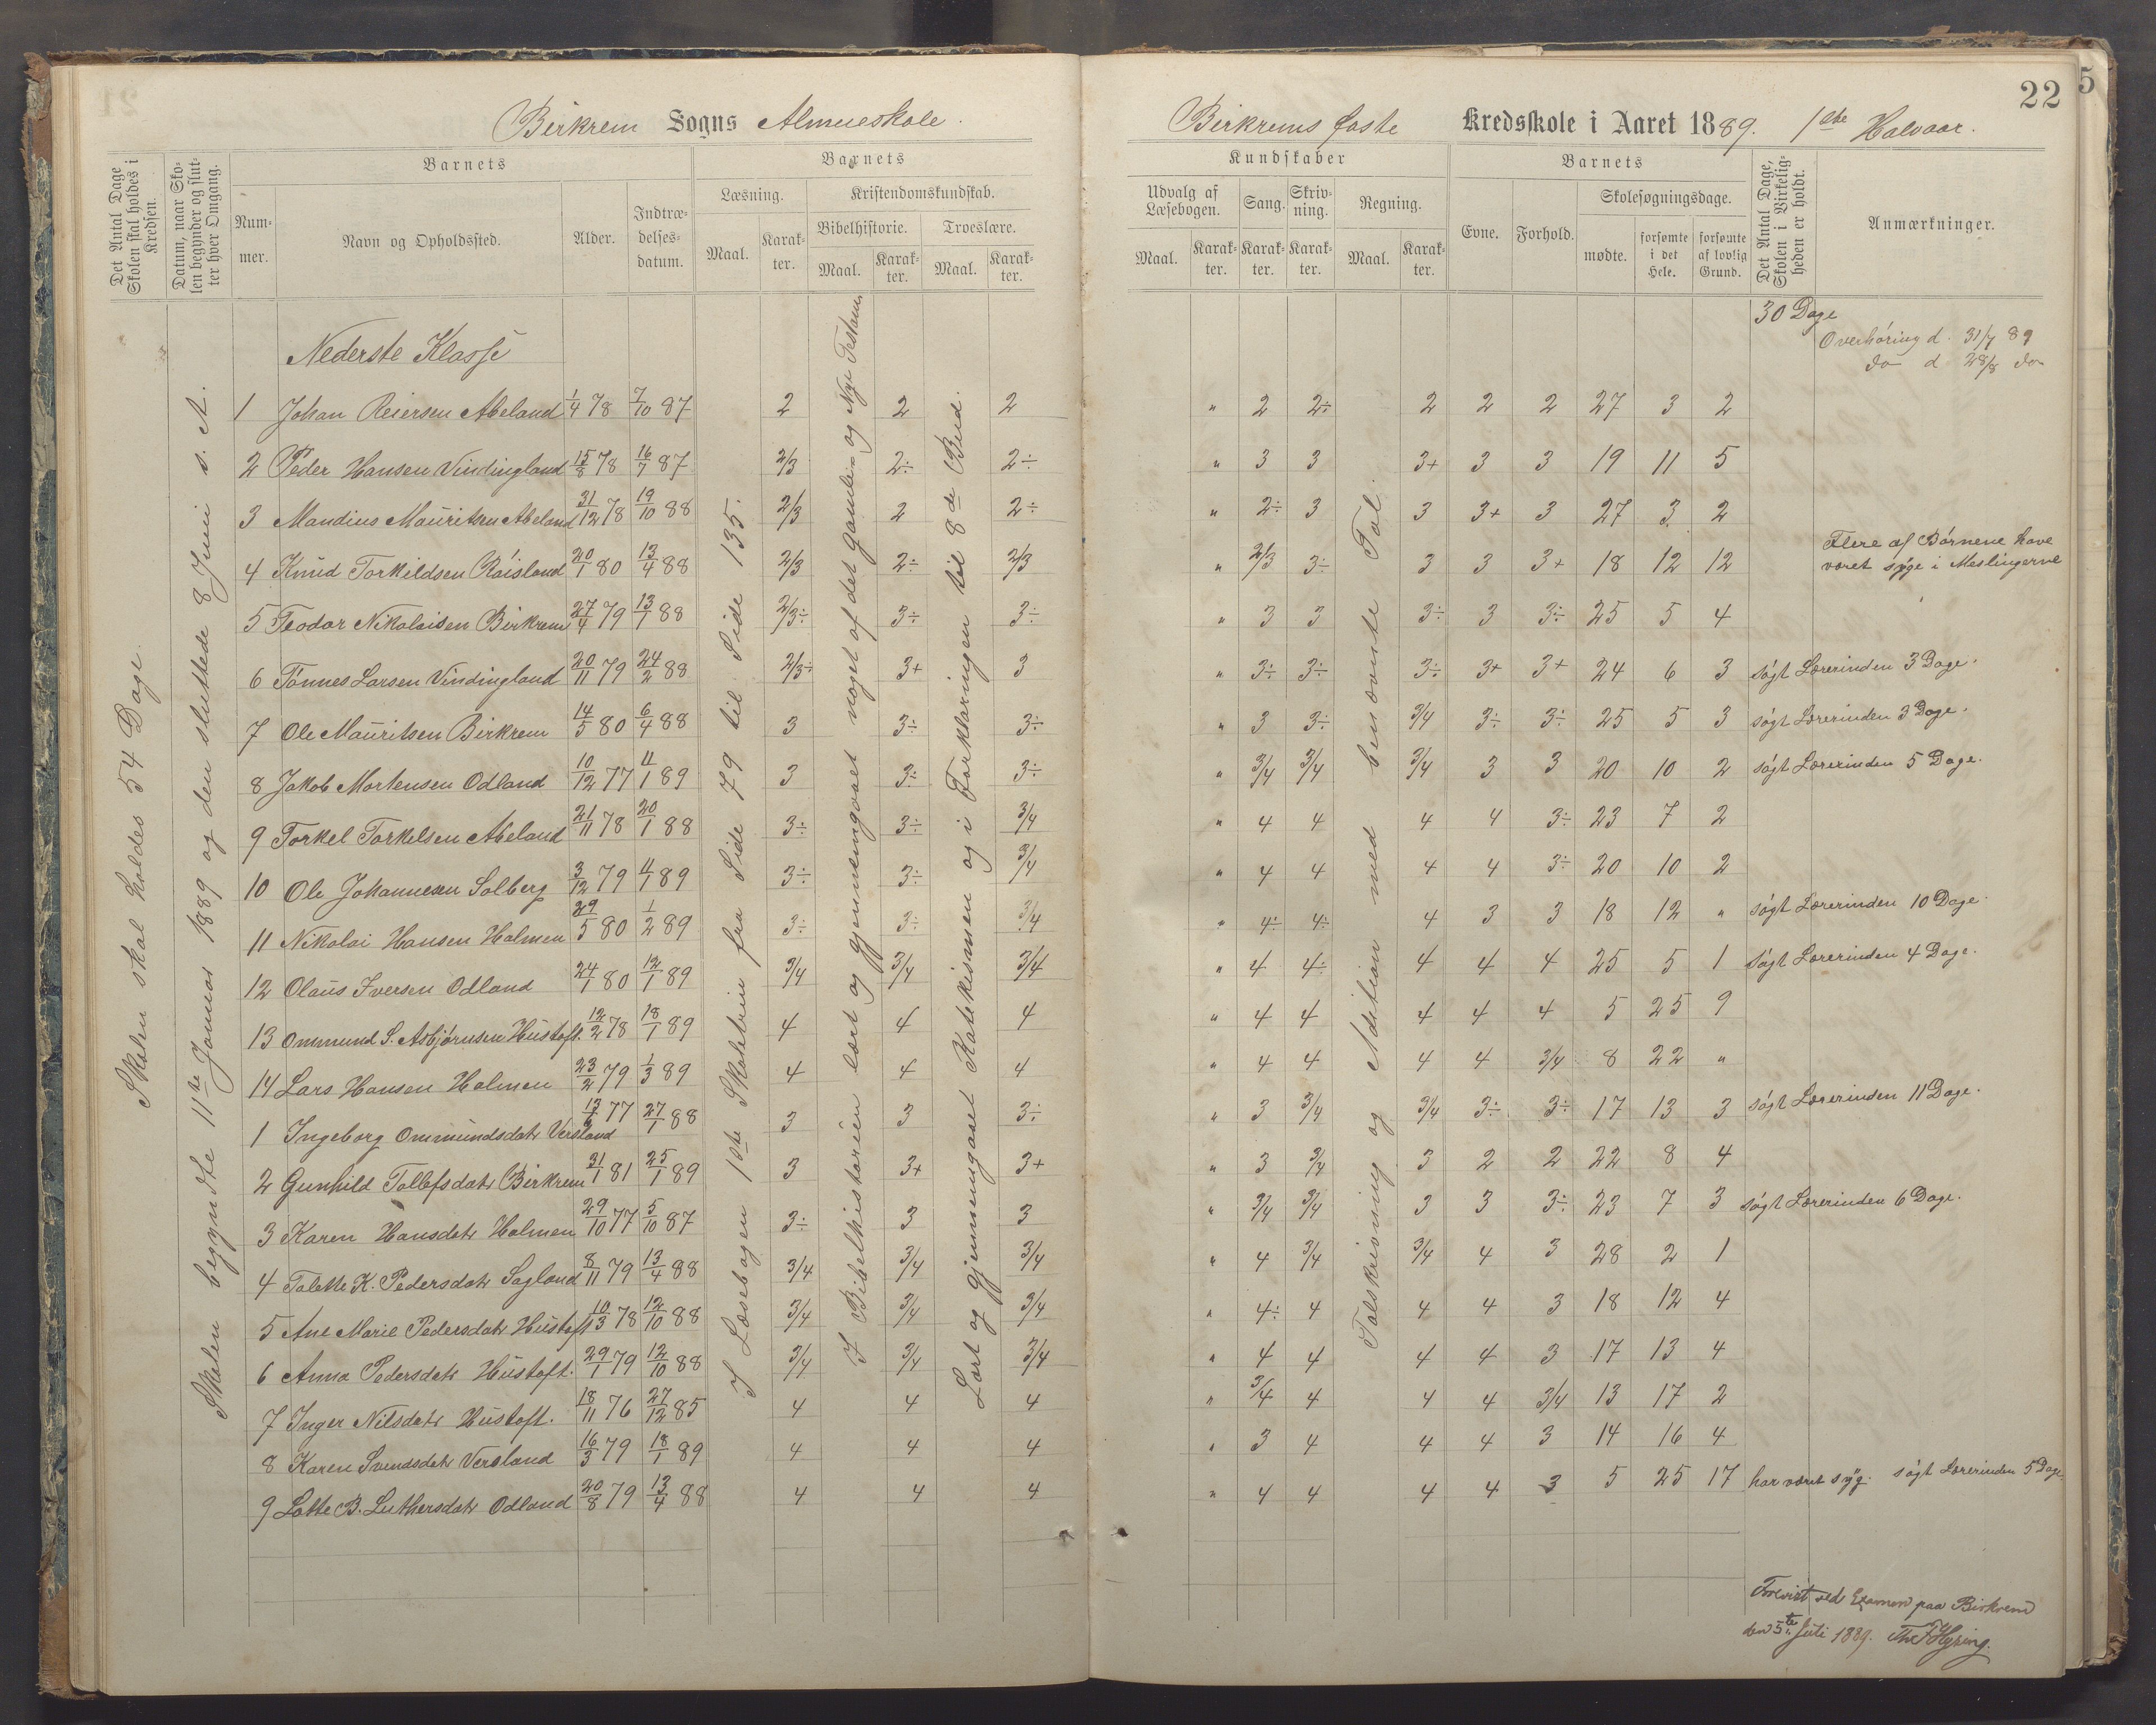 22
5
Birkrem Sogns Almueskole.
Birkrems faste Kredsskole i Aaret 1889. 1ste Halvaar.
Det Antal Dage Skolen skal holdes i Kredsen.
Datum, naar Skolen begynder og slutter hver Omgang.
Barnets
Nummer.
Navn og Opholdssted.
Alder.
Indtrædelsesdatum.
Barnets
Læsning.
Maal.
Karakter.
Kristendomskundskab.
Bibelhistorie.
Maal.
Karakter.
Troeslære.
Maal.
Karakter.
Kundskaber
Udvalg af Læsebogen.
Maal.
Karakter.
Sang.
Karakter.
Skrivning.
Karakter.
Regning.
Maal.
Karakter.
Barnets
Evne.
Forhold.
Skolesøgningsdage.
mødte.
forsømte i det Hele.
forsømte af lovlig Grund.
Det Antal Dage, Skolen i Virkeligheden er holdt.
Anmærkninger.
Skolen skal holdes 54 Dage.
Skolen begyndte 11te Januar 1889 og den sluttede 8 Juni s. A.
I Læsebogen 1ste Skoletrin fra Side 79 til Side 135.
I Bibelhistorien lært og gjennemgaaet noget af det Gamle og Nye Testam.
Lært og gjennemgaaet Katekismen og i Forklaringen til 8de Bud.
Talskrivning og Adition med benævnte Tal.
30 Dage
Overhøring d. 31/7 89
do d 28/8 do
Nederste Klasse
1 Johan Reiersen Abeland 1/4 78 7/10 87 2 2 2 " 2 2÷ 2 2 2 27 3 2
2 Peder Hansen Vindingland 15/8 78 16/7 87 2/3 2÷ 2÷ " 3 3 3+ 3 3 19 11 5
3 Mandius Mauritsen Abeland 31/12 78 19/10 88 2/3 2 2÷ " 2÷ 3 3 3+ 3 27 3 2
4 Knud Torkildsen Røisland 20/1 80 13/4 88 2/3 2÷ 2/3 " 2/3 3÷ 3 3 3+ 18 12 12 Flere af Børnene have
været syge i Meslingerne
5 Teodor Nikolaisen Birkrem 27/4 79 13/1 88 2/3÷ 3÷ 3÷ " 3 3 3÷ 3 3÷ 25 5 4
6 Tønnes Larsen Vindingland 20/11 79 24/2 88 2/3÷ 3+ 3 " 3÷ 3÷ 3÷ 3+ 3+ 24 6 3 søgt Lærerinden 3 Dage.
7 Ole Mauritsen Birkrem 14/5 80 6/4 88 3 3÷ 3÷ " 3 3÷ 3/4 3÷ 3÷ 25 5 3 søgt Lærerinden 3 Dage.
8 Jakob Mortensen Odland 10/12 77 11/1 89 3 3÷ 3÷ " 3/4 3/4 3/4 3 3 20 10 2 søgt Lærerinden 5 Dage.
9 Torkel Torkelsen Abeland 21/11 78 20/1 88 3÷ 3÷ 3/4 " 4 4 4 4 3÷ 23 7 2
10 Ole Johannesen Solberg 3/12 79 11/1 89 3÷ 3÷ 3/4 " 4 4 4 4 3÷ 20 10 2
11 Nikolai Hansen Holmen 29/5 80 1/2 89 3÷ 3÷ 3/4 " 4÷ 4÷ 4 3 3 18 12 " søgt Lærerinden 10 Dage.
12 Olaus Iversen Odland 24/1 80 12/1 89 3/4 3/4 3/4 " 4 4÷ 4 4 4 25 5 1 søgt Lærerinden 4 Dage.
13 Ommund S. Asbjørnsen Hustoft. 12/2 78 18/1 89 4 4 4 " 4 4 4 4 4 5 25 9
14 Lars Hansen Holmen 23/2 79 1/3 89 4 4 4 " 4 4 4 4 3/4 8 22 "
1 Ingeborg Ommundsdatr Versland 77 27/1 88 3 3 3÷ " 3 3/4 3/4 3÷ 3÷ 17 13 3 søgt Lærerinden 11 Dage.
2 Gunhild Tollefsdatr Birkrem 31/1 81 25/1 89 3 3+ 3+ " 3 3/4 3 2 2 22 8 4
3 Karen Hansdatr Holmen 29/10 77 5/10 87 3÷ 3 3 " 3/4 3/4 3 3 3÷ 23 7 3 søgt Lærerinden 6 Dage.
4 Talette K. Pedersdatr Sagland 8/11 79 13/4 88 3/4 3/4 3/4 " 4 3/4 3/4 4 3 28 2 1
5 Ane Marie Pedersdatr Hustoft 10/3 78 12/10 88 3/4 3/4 3/4 " 4÷ 4 4 4 3 18 12 4
6 Anna Pedersdatr Hustoft. 29/1 79 12/10 88 3/4 3/4 3/4 " 4 4 4 4 3 17 13 4
7 Inger Nilsdatr Hustoft. 18/11 76 27/12 85 4 4 4 " 3/4 4 4 4 3/4 13 17 2
8 Karen Svendsdatr Versland 16/3 79 18/1 89 4 4 4 " 3 4 4 4 3 14 16 4
9 Lotte B. Luthersdatr Odland 20/8 79 13/4 88 4 4 4 " 4 4 4 4 3 5 25 17 har været syg. søgt Lærerinden 5 Dage.
Forevist ved Examen paa Birkrem
den 5te Juli 1889.